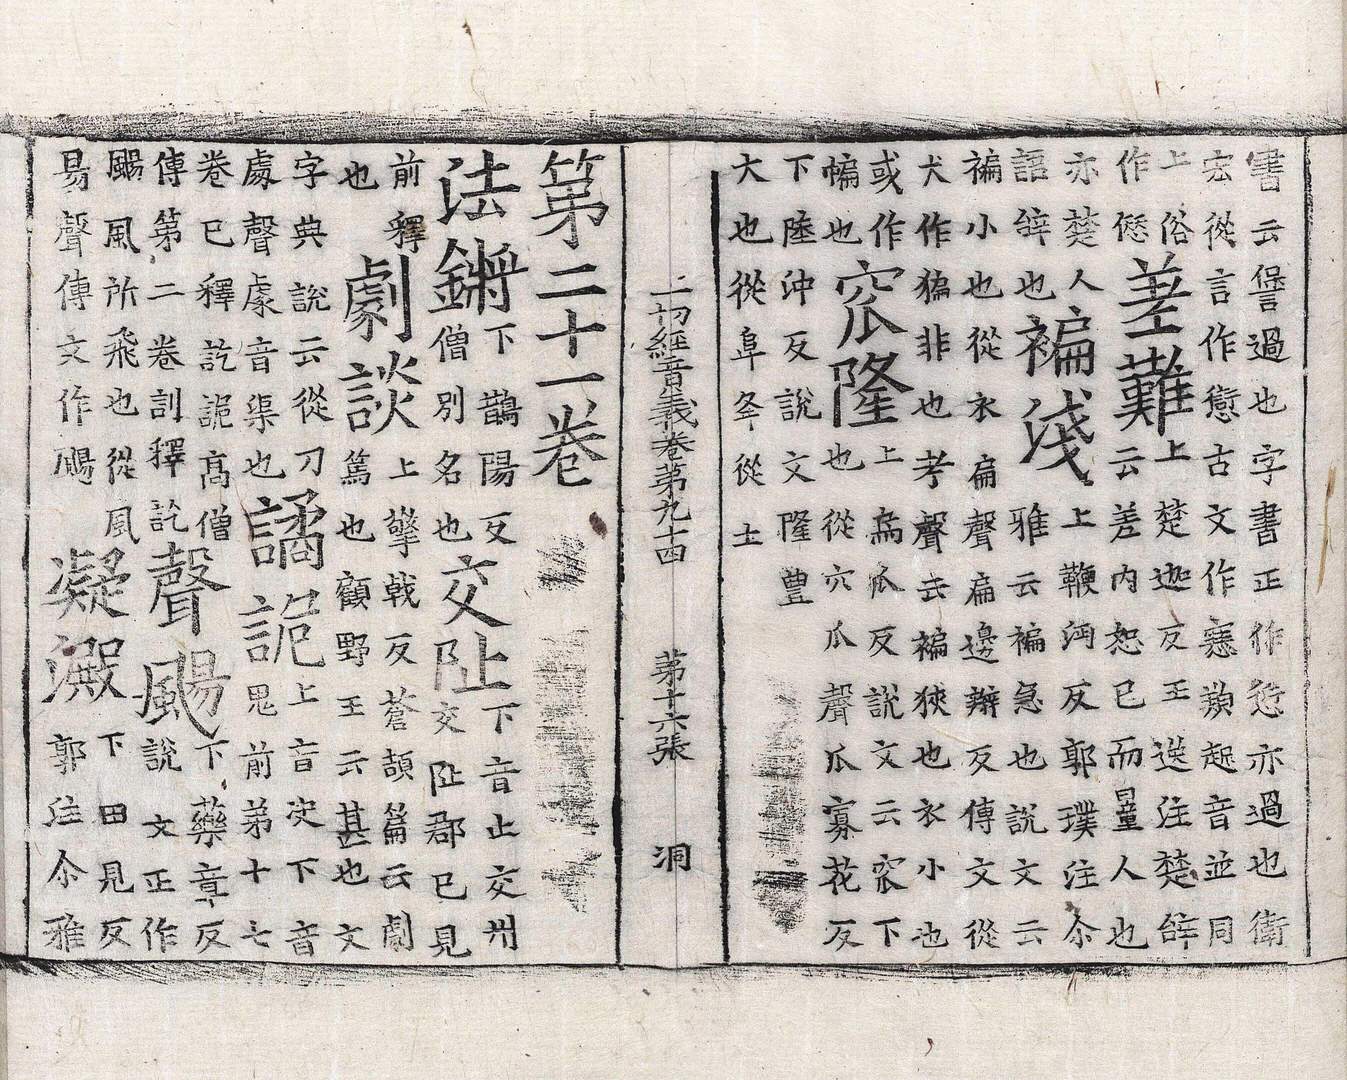 書云諐過也字書正作愆亦過也衛
宏從言作㥶古文作寋䫏起音並同
差難
上俗
作㥶
上楚迦反王逸注楚辝
云差内恕已而量人也
亦楚人
語辝也
褊淺
上鞭沔反郭璞注尒
雅云褊急也說文云
褊小也從衣扁聲扁邊辮反傳文從
犬作猵非也考聲去褊狹也衣小也
或作
惼也
窊隆
上烏瓜反說文云窊下
也從穴瓜聲瓜寡花反
下陸沖反說文隆豐
大也從阜夅從土
一切經音義卷第九十四 第十六張 洞
第二十一卷
法鏘
下鵲陽反
僧別名也
交阯
下音止交州
交阯郡已見
前釋
也
劇談
上擎戟反蒼頡篇云劇
篤也顧野王云甚也文
字典說云從刀
䖒聲䖒音渠也
譎詭
上音決下音
鬼前第十七
卷已釋訖詭高僧
傳第二卷訓釋訖
聲颺
下藥章反
說文正作
颺風所飛也從風
昜聲傳文作颺
凝澱
下田見反
郭注尒雅